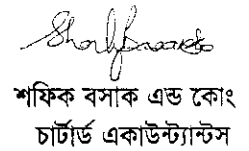 শফিক বসাক এন্ড কোং
চার্টার্ড একাউন্ট্যান্টস